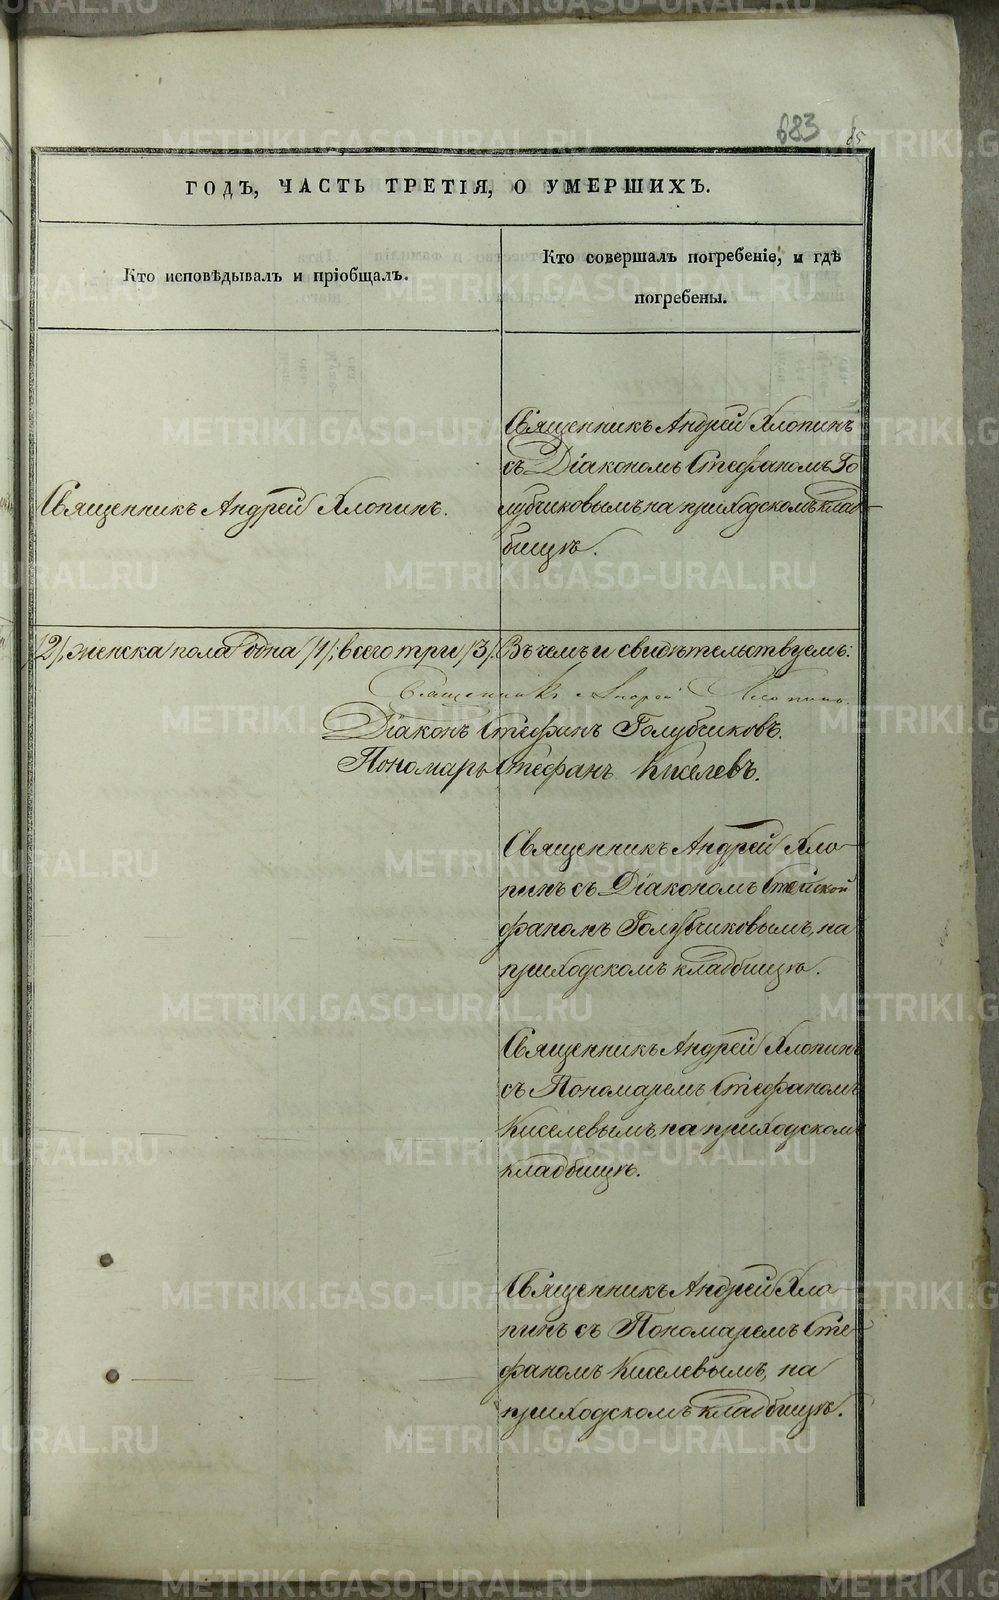 683
85
ГОДЪ, ЧАСТЬ ТРЕТІЯ, О УМЕРШИХЪ.
Кто исповѣдывалъ и пріобщалъ.
Кто совершалъ погребеніе, и гдѣ
погребены.
Священникъ Андрей Хлопинъ.
Священникъ Андрей Хлопинъ
съ Діакономъ Стефаномъ Го
лубчиковымъ на приходскомъ клад-
бищѣ.
/2/, женска пола одна /1/, всего три /3/. Въ чемъ и свидѣтельствуемъ:
Священникъ Андрей Хлопинъ.
Діаконъ Стефанъ Голубчиковъ.
Пономарь Стефанъ Киселевъ.
Священникъ Андрей Хло-
пинъ съ Діакономъ
фаномъ Голубчиковымъ, на
приходскомъ кладбищѣ.
Священникъ Андрей Хлопинъ
съ Пономаремъ Стефаномъ
Киселевымъ, на приходскомъ
кладбищѣ.
Священникъ Андрей Хло-
пинъ съ Пономаремъ Сте-
фаномъ Киселевымъ, на
приходскомъ кладбищѣ.
METRIKI.GASO-URAL.RU